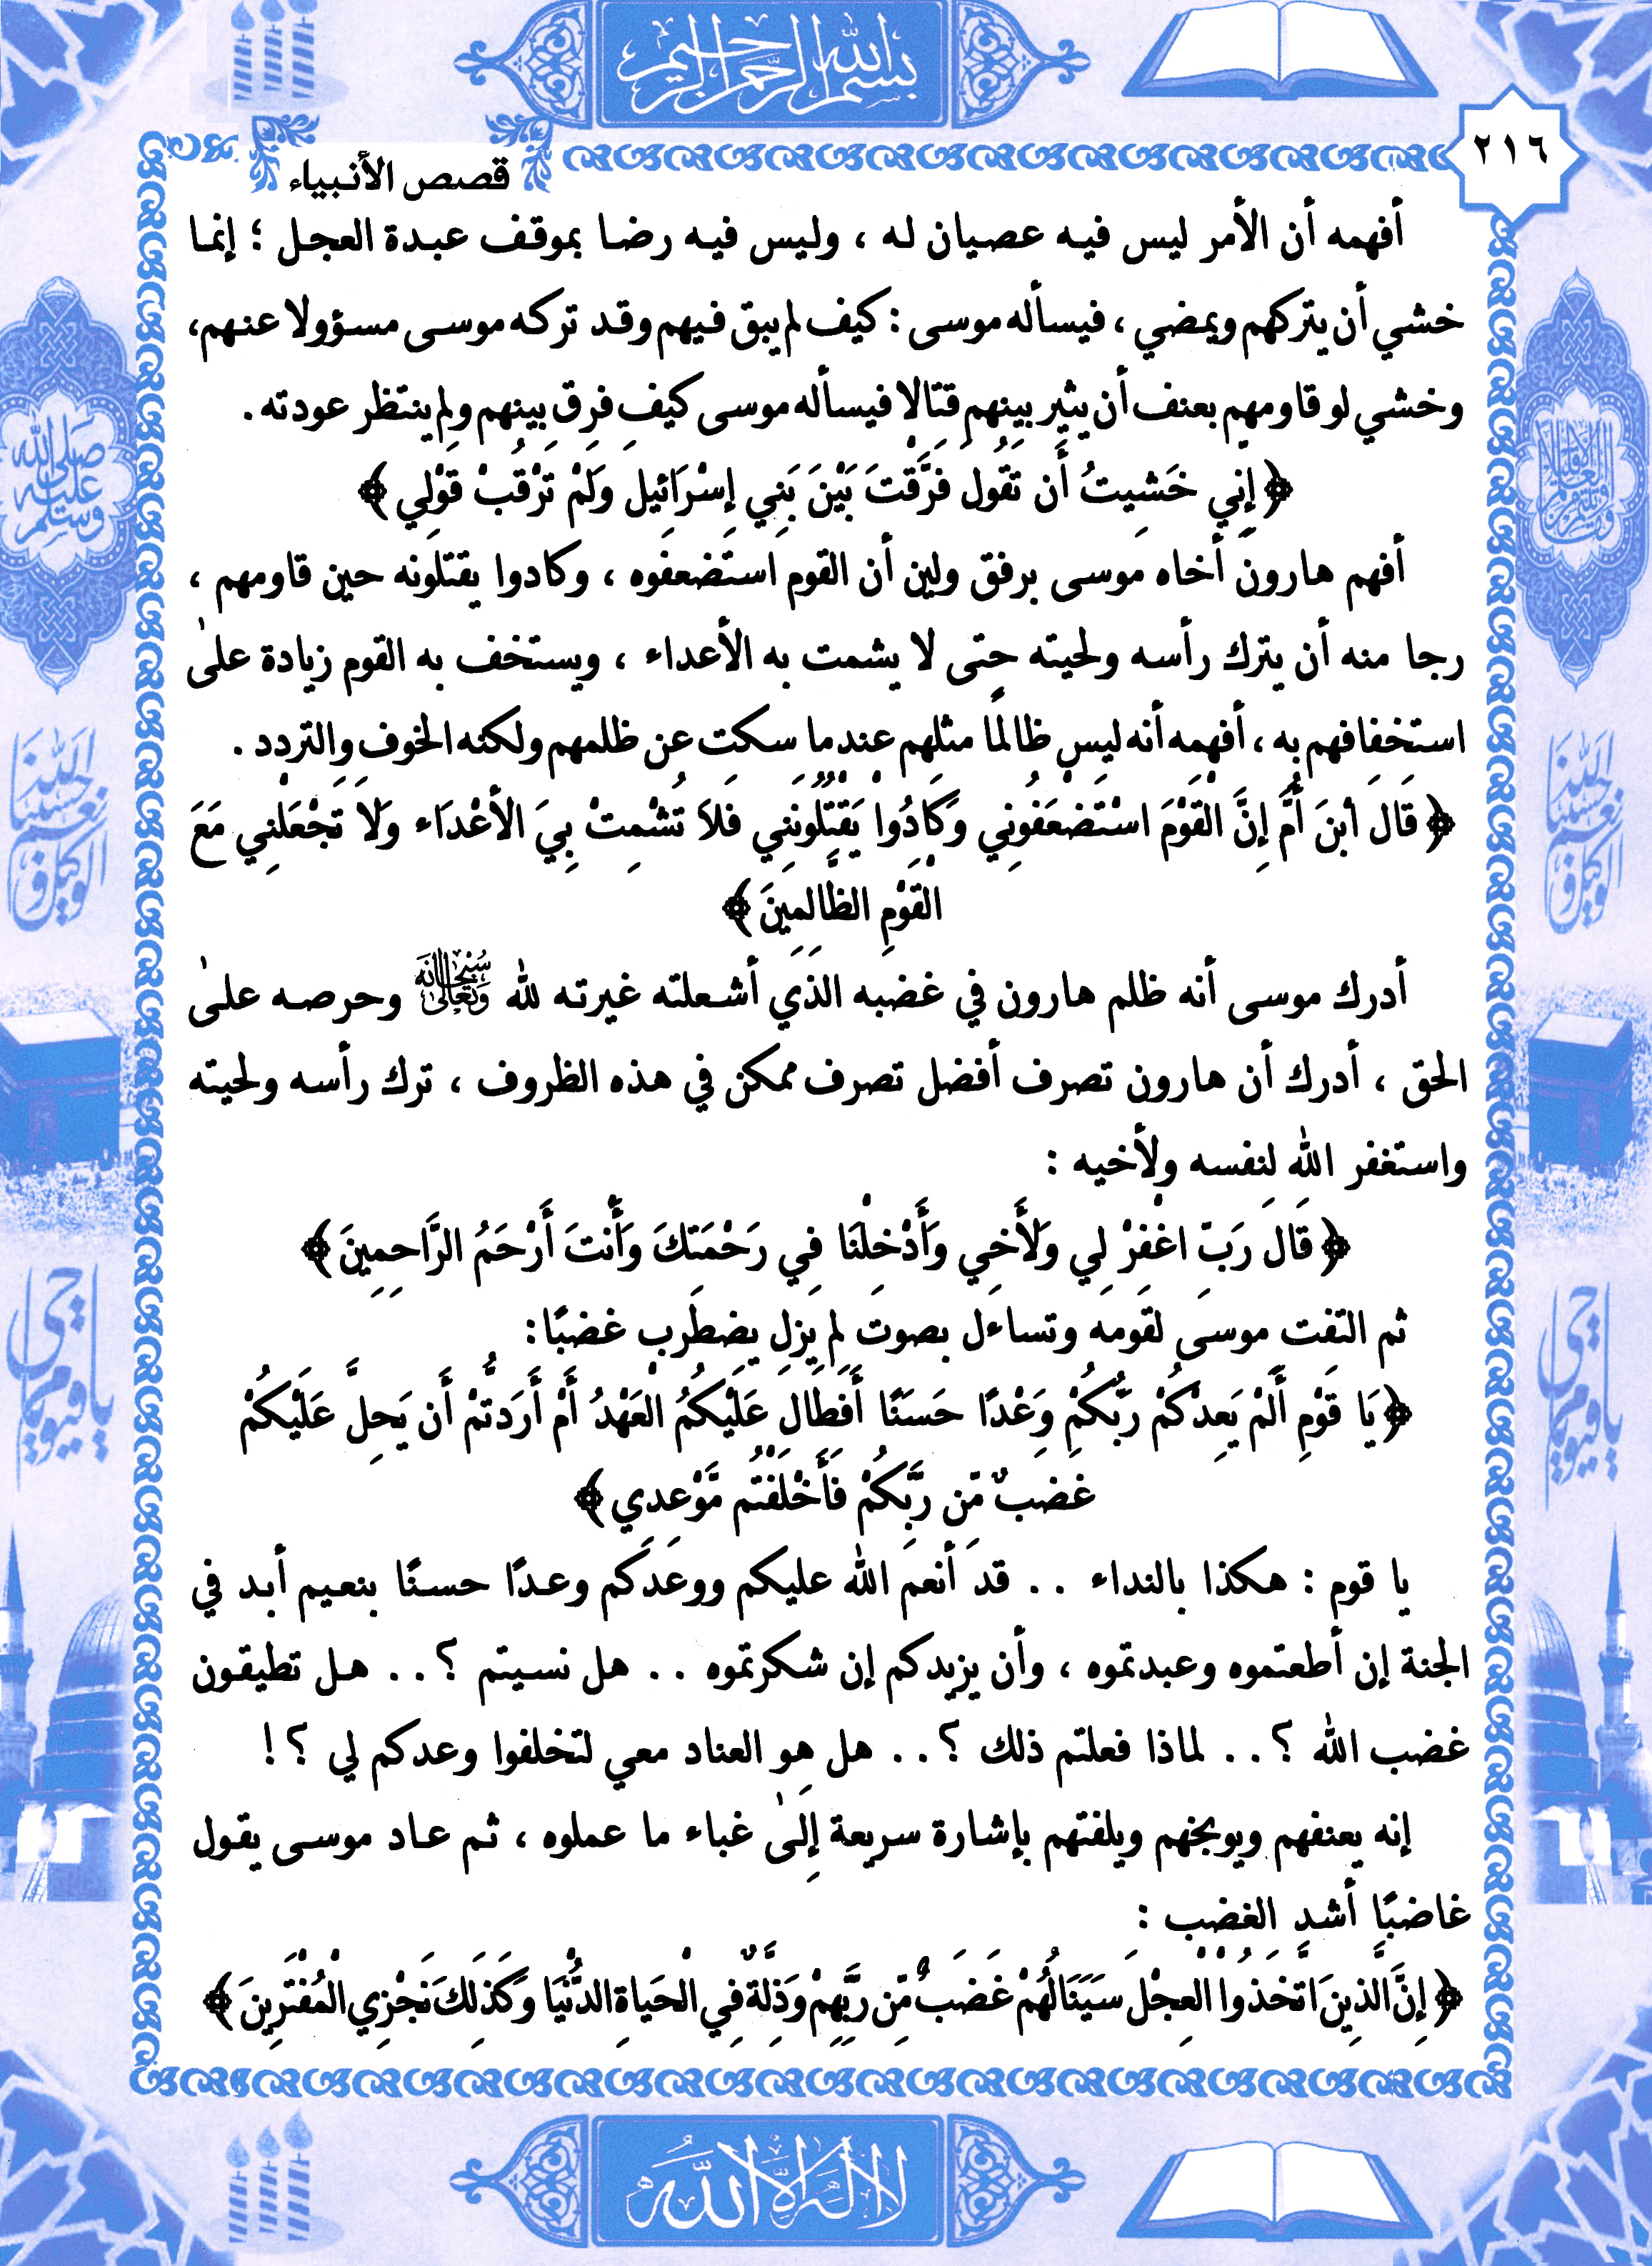 بسم الله الرحمن الرحيم
٢١٦
قصص الأنبياء
أفهمه أن الأمر ليس فيه عصيان له ، وليس فيه رضا بموقف عبدة العجل ؛ إنما
خشي أن يتركهم ويمضي ، فيسأله موسى : كيف لم يبق فيهم وقد تركه موسى مسؤولا عنهم،
وخشي لو قاومهم بعنف أن يثير بينهم قتالا فيسأله موسى كيف فرق بينهم ولم ينتظر عودته .
﴿ إِنِّي خَشِيتُ أَن تَقُولَ فَرَّقْتَ بَيْنَ بَنِي إِسْرَائِيلَ وَلَمْ تَرْقُبْ قَوْلِي ﴾
أفهم هارون أخاه موسى برفق ولين أن القوم استضعفوه ، وكادوا يقتلونه حين قاومهم ،
رجا منه أن يترك رأسه ولحيته حتى لا يشمت به الأعداء ، ويستخف به القوم زيادة على
استخفافهم به ، أفهمه أنه ليس ظالمًا مثلهم عندما سكت عن ظلمهم ولكنه الخوف والتردد .
﴿ قَالَ ابْنَ أُمَّ إِنَّ الْقَوْمَ اسْتَضْعَفُونِي وَكَادُوا يَقْتُلُونَنِي فَلاَ تُشْمِتْ بِيَ الأَعْدَاء وَلاَ تَجْعَلْنِي مَعَ
الْقَوْمِ الظَّالِمِينَ ﴾
أدرك موسى أنه ظلم هارون في غضبه الذي أشعلته غيرته لله سبحانه وتعالى وحرصه على
الحق ، أدرك أن هارون تصرف أفضل تصرف ممكن في هذه الظروف ، ترك رأسه ولحيته
واستغفر الله لنفسه ولأخيه :
﴿ قَالَ رَبِّ اغْفِرْ لِي وَلأَخِي وَأَدْخِلْنَا فِي رَحْمَتِكَ وَأَنتَ أَرْحَمُ الرَّاحِمِينَ ﴾
ثم التفت موسى لقومه وتساءل بصوت لم يزل يضطرب غضبًا :
﴿ يَا قَوْمِ أَلَمْ يَعِدْكُمْ رَبُّكُمْ وَعْدًا حَسَنًا أَفَطَالَ عَلَيْكُمُ الْعَهْدُ أَمْ أَرَدتُّمْ أَن يَحِلَّ عَلَيْكُمْ
غَضَبٌ مِّن رَّبِّكُمْ فَأَخْلَفْتُم مَّوْعِدِي ﴾
يا قوم : هكذا بالنداء . . قد أنعم الله عليكم ووعدكم وعدًا حسنًا بنعيم أبد في
الجنة إن أطعتموه وعبدتموه ، وأن يزيدكم إن شكرتموه . . هل نسيتم ؟ . . هل تطيقون
غضب الله ؟ . . لماذا فعلتم ذلك ؟ . . هل هو العناد معي لتخلفوا وعدكم لي ؟ !
إنه يعنفهم ويوبخهم ويلفتهم بإشارة سريعة إلى غباء ما عملوه ، ثم عاد موسى يقول
غاضبًا أشد الغضب :
﴿ إِنَّ الَّذِينَ اتَّخَذُوا الْعِجْلَ سَيَنَالُهُمْ غَضَبٌ مِّن رَّبِّهِمْ وَذِلَّةٌ فِي الْحَيَاةِ الدُّنْيَا وَكَذَلِكَ نَجْزِي الْمُفْتَرِينَ ﴾
لا إله إلا الله
صلى الله عليه وسلم
حسبنا الله ونعم الوكيل
يا حي يا قيوم
حسبنا الله ونعم الوكيل
يا حي يا قيوم